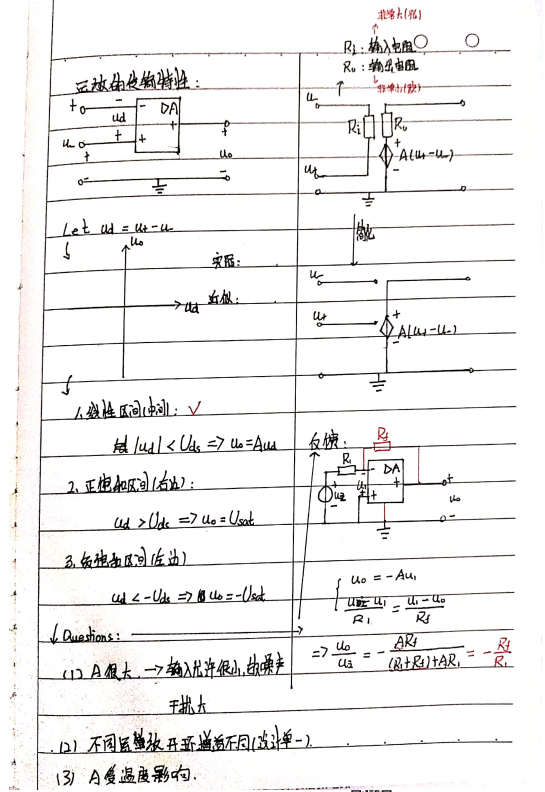 运放的传输特性：
+ - DA
ud
u- + + +
+ u0
- -
Let ud = u+ - u-
u0
实际：
ud 近似：
1. 线性区间(中间)：✓
|ud| < Uds => u0 = Aud
2. 正饱和区间(右边)：
ud > Uds => u0 = Usat
3. 负饱和区间(左边)
ud < -Uds => u0 = -Usat
Questions：
(1) A很大 → 输入允许很小，故噪声
干扰大
(2) 不同运放开环增益不同(设计单一).
(3) A受温度影响.
非常大(很)
Ri：输入电阻
Ro：输出电阻
非常小(致)
u-
Ri Ro
+
u+ A(u+ - u-)
-
简化
u-
u+ +
A(u+ - u-)
-
反馈： Rf
R1 - DA
u2 u1 + + +
u0
-
u0 = -Au1
u2 - u1 / R1 = u1 - u0 / Rf
=> u0 / u2 = - ARf / (R1+Rf)+AR1 = - Rf / R1